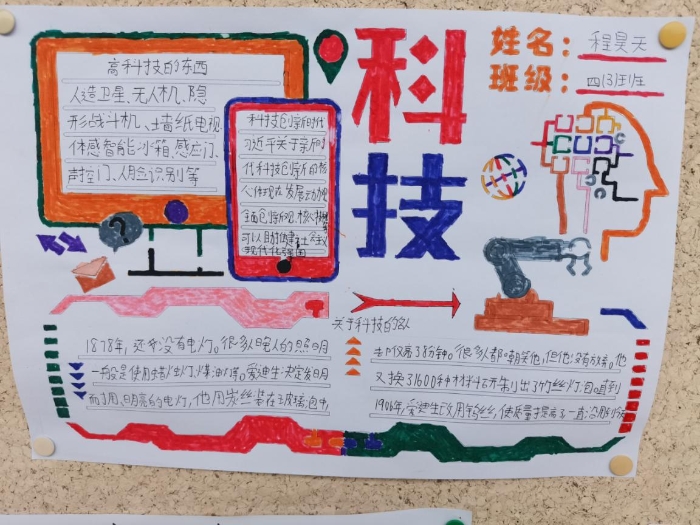 科技
姓名：程昊天
班级：四(3)班
高科技的东西
人造卫星、无人机、隐
形战斗机、壁纸电视
体感智能冰箱、感应门、
声控门、人脸识别等
科技创新时代
习近平关于新时
代科技创新的
体现在发展动力
全面创新
可以助力建社会主义
现代化强国
关于科技的名人
1878年，还没有电灯。很多人的照明
一般是使用蜡烛灯、煤油灯等。爱迪生决定发明
耐用、明亮的电灯，他用炭丝装在玻璃泡中，
却仅亮了8分钟。很多人都嘲笑他，但他没有放弃。他
又换了1600种材料研制出了竹丝灯泡直到
1906年，爱迪生改用钨丝，使质量提高了一直沿用